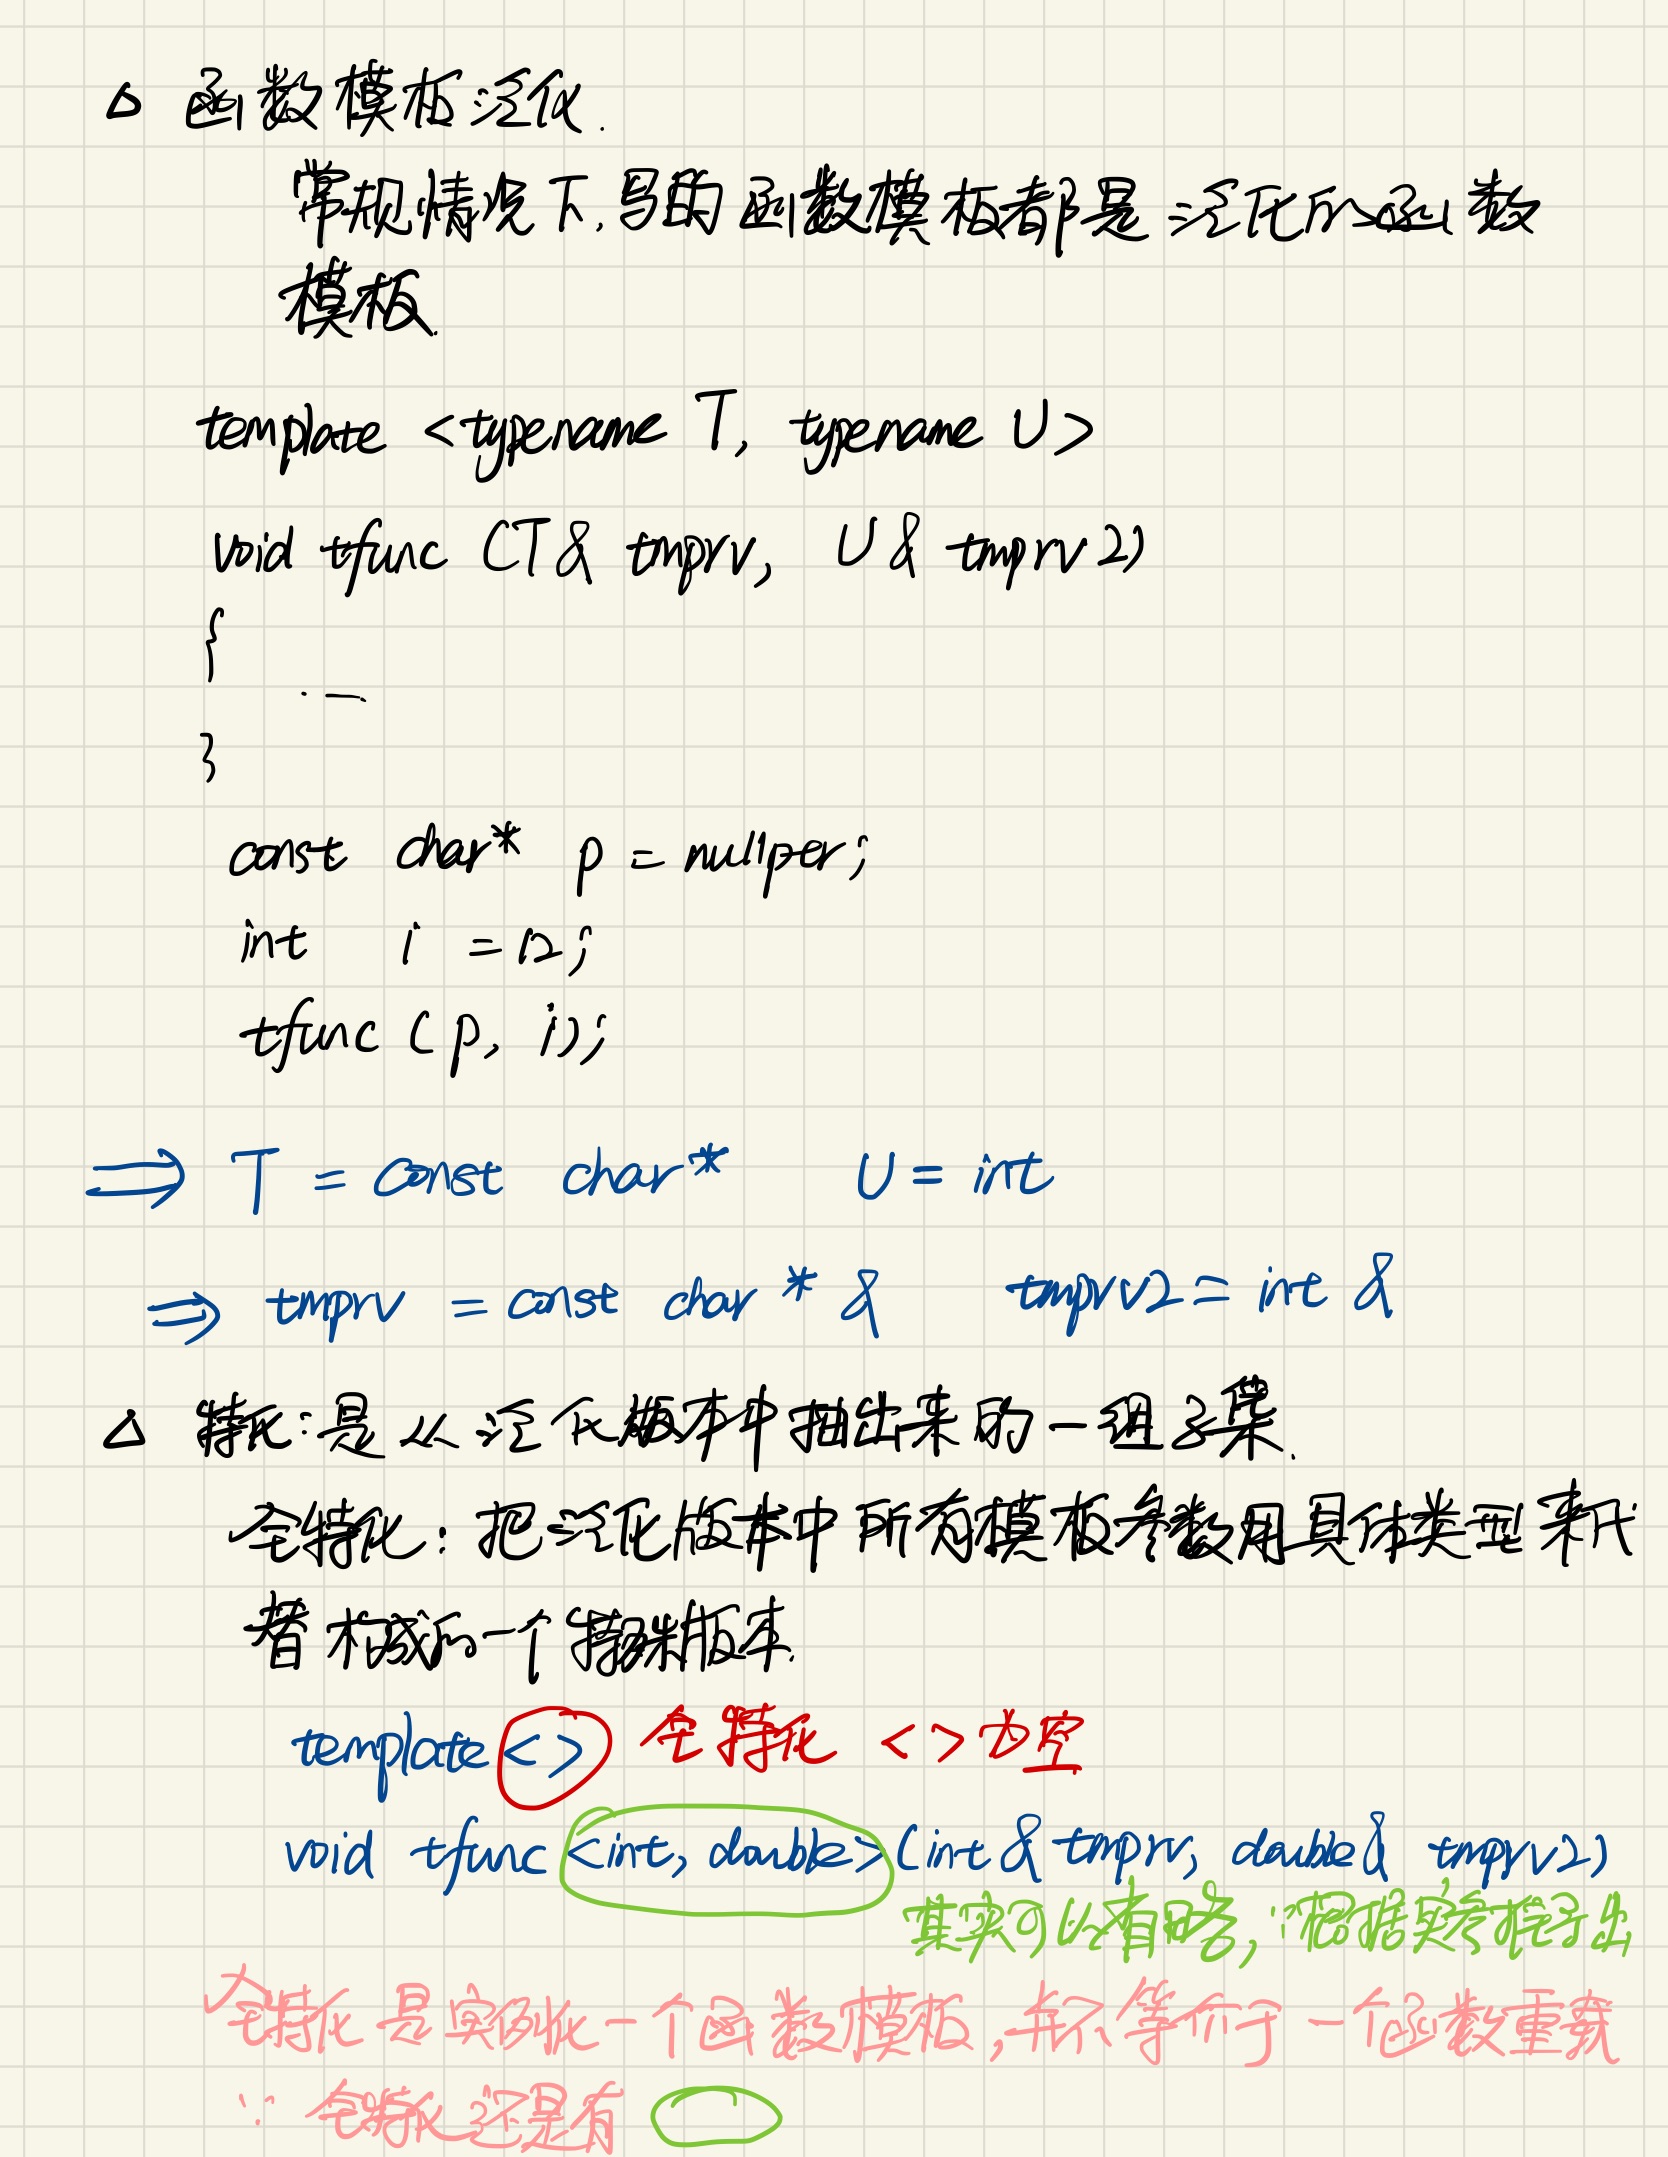 △ 函数模板泛化.
常规情况下,写的函数模板都是泛化的函数
模板.
template <typename T, typename U>
void tfunc (T& tmprv, U& tmprv2)
{
...
}
const char* p = nullper;
int i = 12;
tfunc (p, i);
⇒ T = const char* U = int
⇒ tmprv = const char * & tmprv2 = int &
△ 特化:是从泛化版本中抽出来的一组子集.
全特化:把泛化版本中所有模板参数用具体类型来代
替构成的一个特殊版本.
template <> 全特化 <>为空
void tfunc <int, double>(int & tmprv, double& tmprv2)
其实可以省略,∵根据实参推导出
全特化是实例化一个函数模板,并不等价于一个函数重载
∵ 全特化还是有